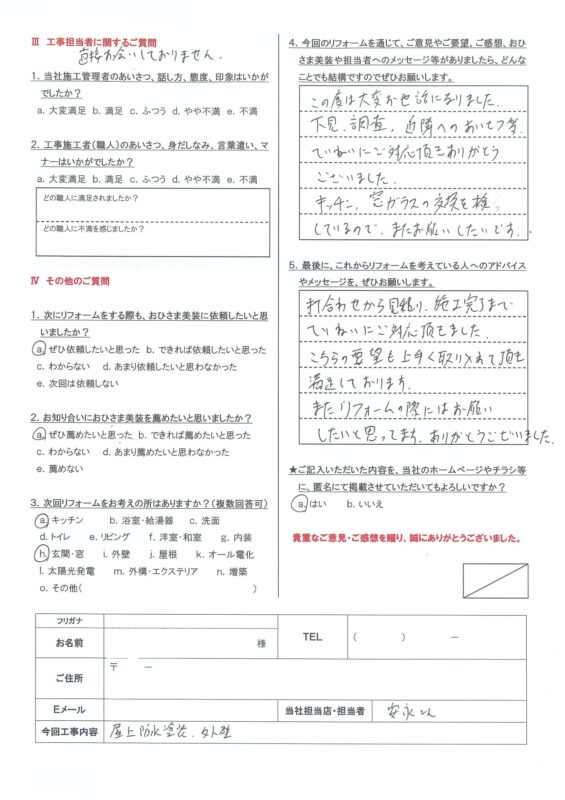 Ⅲ 工事担当者に関するご質問
直接お会いしておりません.
1. 当社施工管理者のあいさつ、話し方、態度、印象はいかが
でしたか？
a. 大変満足 b. 満足 c. ふつう d. やや不満 e. 不満
2. 工事施工者（職人）のあいさつ、身だしなみ、言葉遣い、マ
ナーはいかがでしたか？
a. 大変満足 b. 満足 c. ふつう d. やや不満 e. 不満
どの職人に満足されましたか？
どの職人に不満を感じましたか？
Ⅳ その他のご質問
1. 次にリフォームをする際も、おひさま美装に依頼したいと思
いましたか？
a. ぜひ依頼したいと思った b. できれば依頼したいと思った
c. わからない d. あまり依頼したいと思わなかった
e. 次回は依頼しない
2. お知り合いにおひさま美装を薦めたいと思いましたか？
a. ぜひ薦めたいと思った b. できれば薦めたいと思った
c. わからない d. あまり薦めたいと思わなかった
e. 薦めない
3. 次回リフォームをお考えの所はありますか？（複数回答可）
a. キッチン b. 浴室・給湯器 c. 洗面
d. トイレ e. リビング f. 洋室・和室 g. 内装
h. 玄関・窓 i. 外壁 j. 屋根 k. オール電化
l. 太陽光発電 m. 外構・エクステリア n. 増築
o. その他（ ）
4. 今回のリフォームを通じて、ご意見やご要望、ご感想、おひ
さま美装や担当者へのメッセージ等がありましたら、どんな
ことでも結構ですのでぜひお願いします。
この度は大変お世話になりました.
下見、調査、近隣へのあいさつ等、
ていねいにご対応頂きありがとう
ございました.
キッチン、窓ガラスの交換を検
しているので、またお願いしたいです.
5. 最後に、これからリフォームを考えている人へのアドバイス
やメッセージを、ぜひお願いします。
打合わせから見積り、施工完了まで
ていねいにご対応頂きました.
こちらの要望も上手く取り入れて頂き
満足しております.
またリフォームの際にはお願い
したいと思ってます. ありがとうございました.
★ご記入いただいた内容を、当社のホームページやチラシ等
に、匿名にて掲載させていただいてもよろしいですか？
a. はい b. いいえ
貴重なご意見・ご感想を賜り、誠にありがとうございました。
フリガナ
お名前 様 TEL （ ） −
ご住所 〒 −
Eメール 当社担当店・担当者 安永さん
今回工事内容 屋上防水塗装、外壁